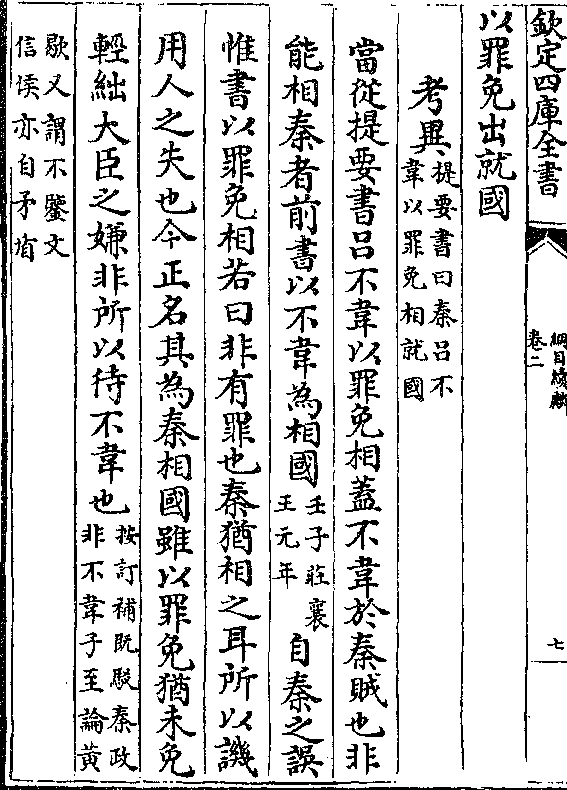 欽定四庫全書
綱目續麟
卷二
七
以罪免出就國
考異
提要書曰秦呂不
韋以罪免相就國
當從提要書呂不韋以罪免相蓋不韋於秦賊也非
能相秦者前書以不韋為相國
壬子莊襄
王元年
自秦之誤
惟書以罪免相若曰非有罪也秦猶相之耳所以譏
用人之失也今正名其為秦相國雖以罪免猶未免
輕絀大臣之嫌非所以待不韋也
按訂補既駁秦政
非不韋子至論黃
歇又謂不鑒文
信侯亦自矛盾